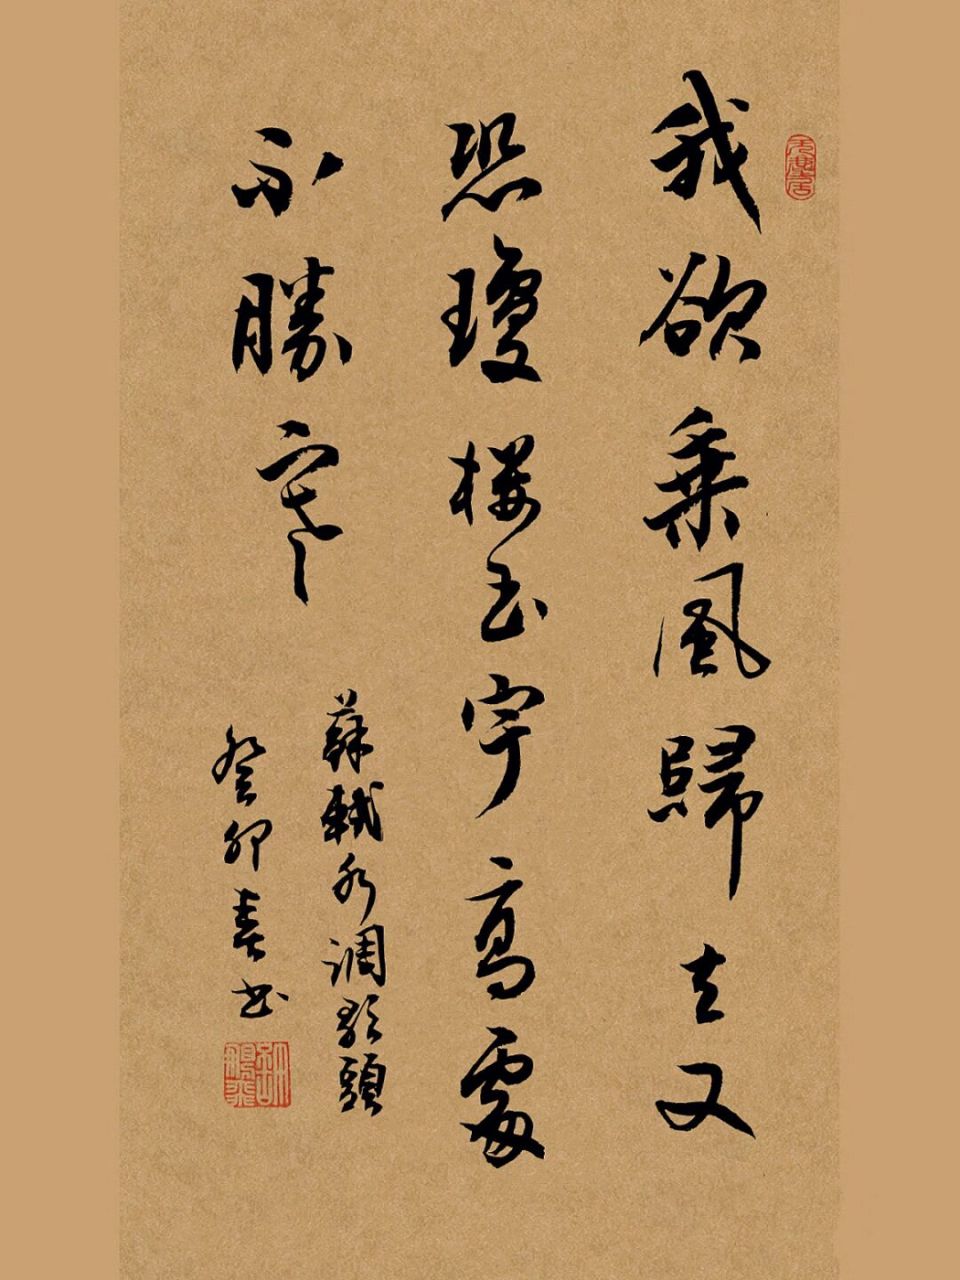 我欲乘风歸去又
恐瓊楼玉宇高處
不勝寒
蘇軾水调歌頭
癸卯春书